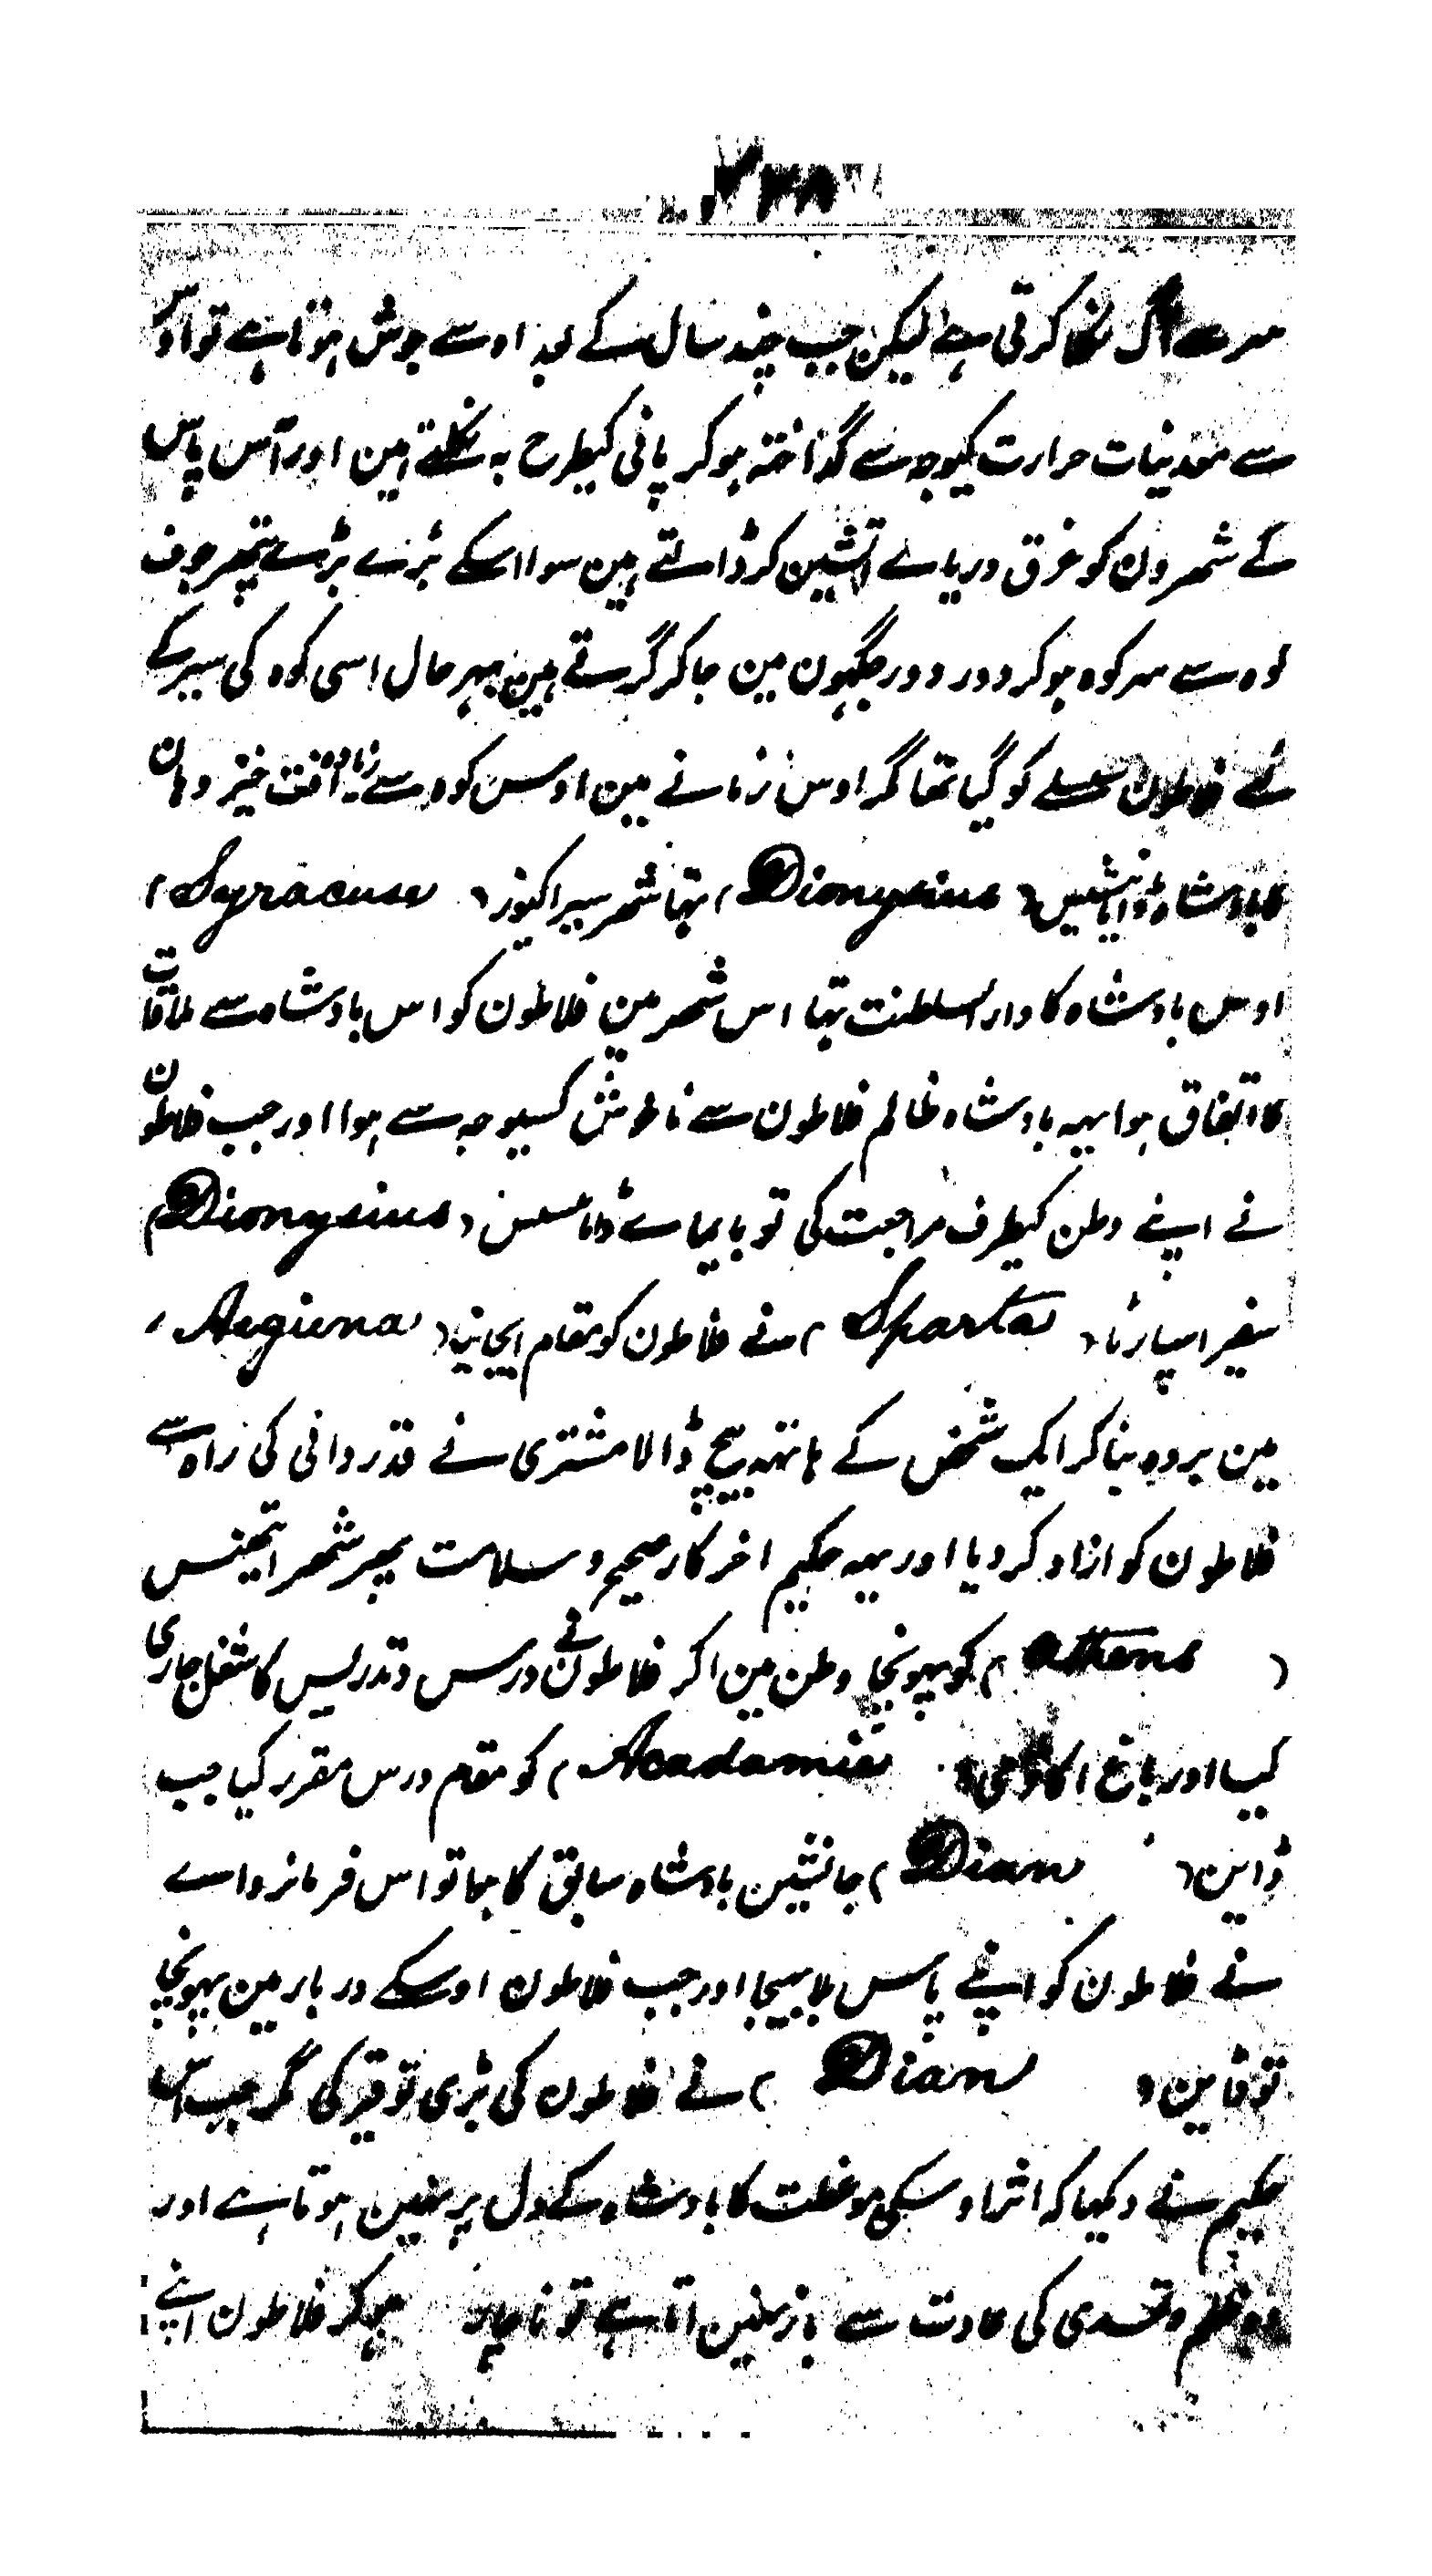 ۲۳۸
سے آگ نکلا کرتی ہے لیکن جب چند سال کے بعد اوسے جوش ہوتا ہے تو اوس
سے معدنیات حرارت کیوجہ سے گداختہ ہوکر پانی کیطرح بہ نکلتے ہین اور آس پاس
کے شہرون کو غرق دریاے آتشین کر ڈالتے ہین سوا اسکے بڑے بڑے پتھر جوف
کوہ سے سر کوہ ہوکر دور دور جگہون مین جاکر گرتے ہین بہرحال اسی کوہ کی سیر کے
لئے فلاطون سسلے کو گیا تھا مگر اوس زمانے مین اوس کوہ سے زیادہ آفت خیز وہان
کا بادشاہ ڈایانیشیس (Dionysius) تہا شہر سیراکیوز (Syracuse)
اوس بادشاہ کا دارالسلطنت تہا اس شہر مین فلاطون کو اس بادشاہ سے ملاقات
کا اتفاق ہوا یہہ بادشاہ ظالم فلاطون سے ناخوش کسیوجہ سے ہوا اور جب فلاطون
نے اپنے وطن کیطرف مراجعت کی تو بایماے (Dionysius)
سفیر اسپارٹا (Sparta) نے فلاطون کو مقام ایجاینیا (Aegiena)
مین بردہ بناکر ایک شخص کے ہاتھہ بیچ ڈالا مشتری نے قدردانی کی راہ سے
فلاطون کو ازاد کردیا اور یہہ حکیم اخر کار صحیح و سلامت پھر شہر اتھینس
(Athens) کو پہونچا وطن مین اکر فلاطون نے درس و تدریس کا شغل جاری
کیا اور باغ اکاڈمی (Acadamia) کو مقام درس مقرر کیا جب
ڈاین (Dian) جانشین بادشاہ سابق کا ہوا تو اس فرمانروا سے
نے فلاطون کو اپنے پاس بلا بہیجا اور جب فلاطون اوسکے دربار مین پہونچا
تو ڈاین (Dian) نے فلاطون کی بڑی توقیر کی مگر جب اس
حکیم نے دیکہا کہ اثر اوسکی موعظت کا بادشاہ کے دل پر نہین ہوتا ہے اور
وہ ظلم و تعدی کی عادت سے باز نہین اتا ہے تو ناچار ہوکر فلاطون اپنے